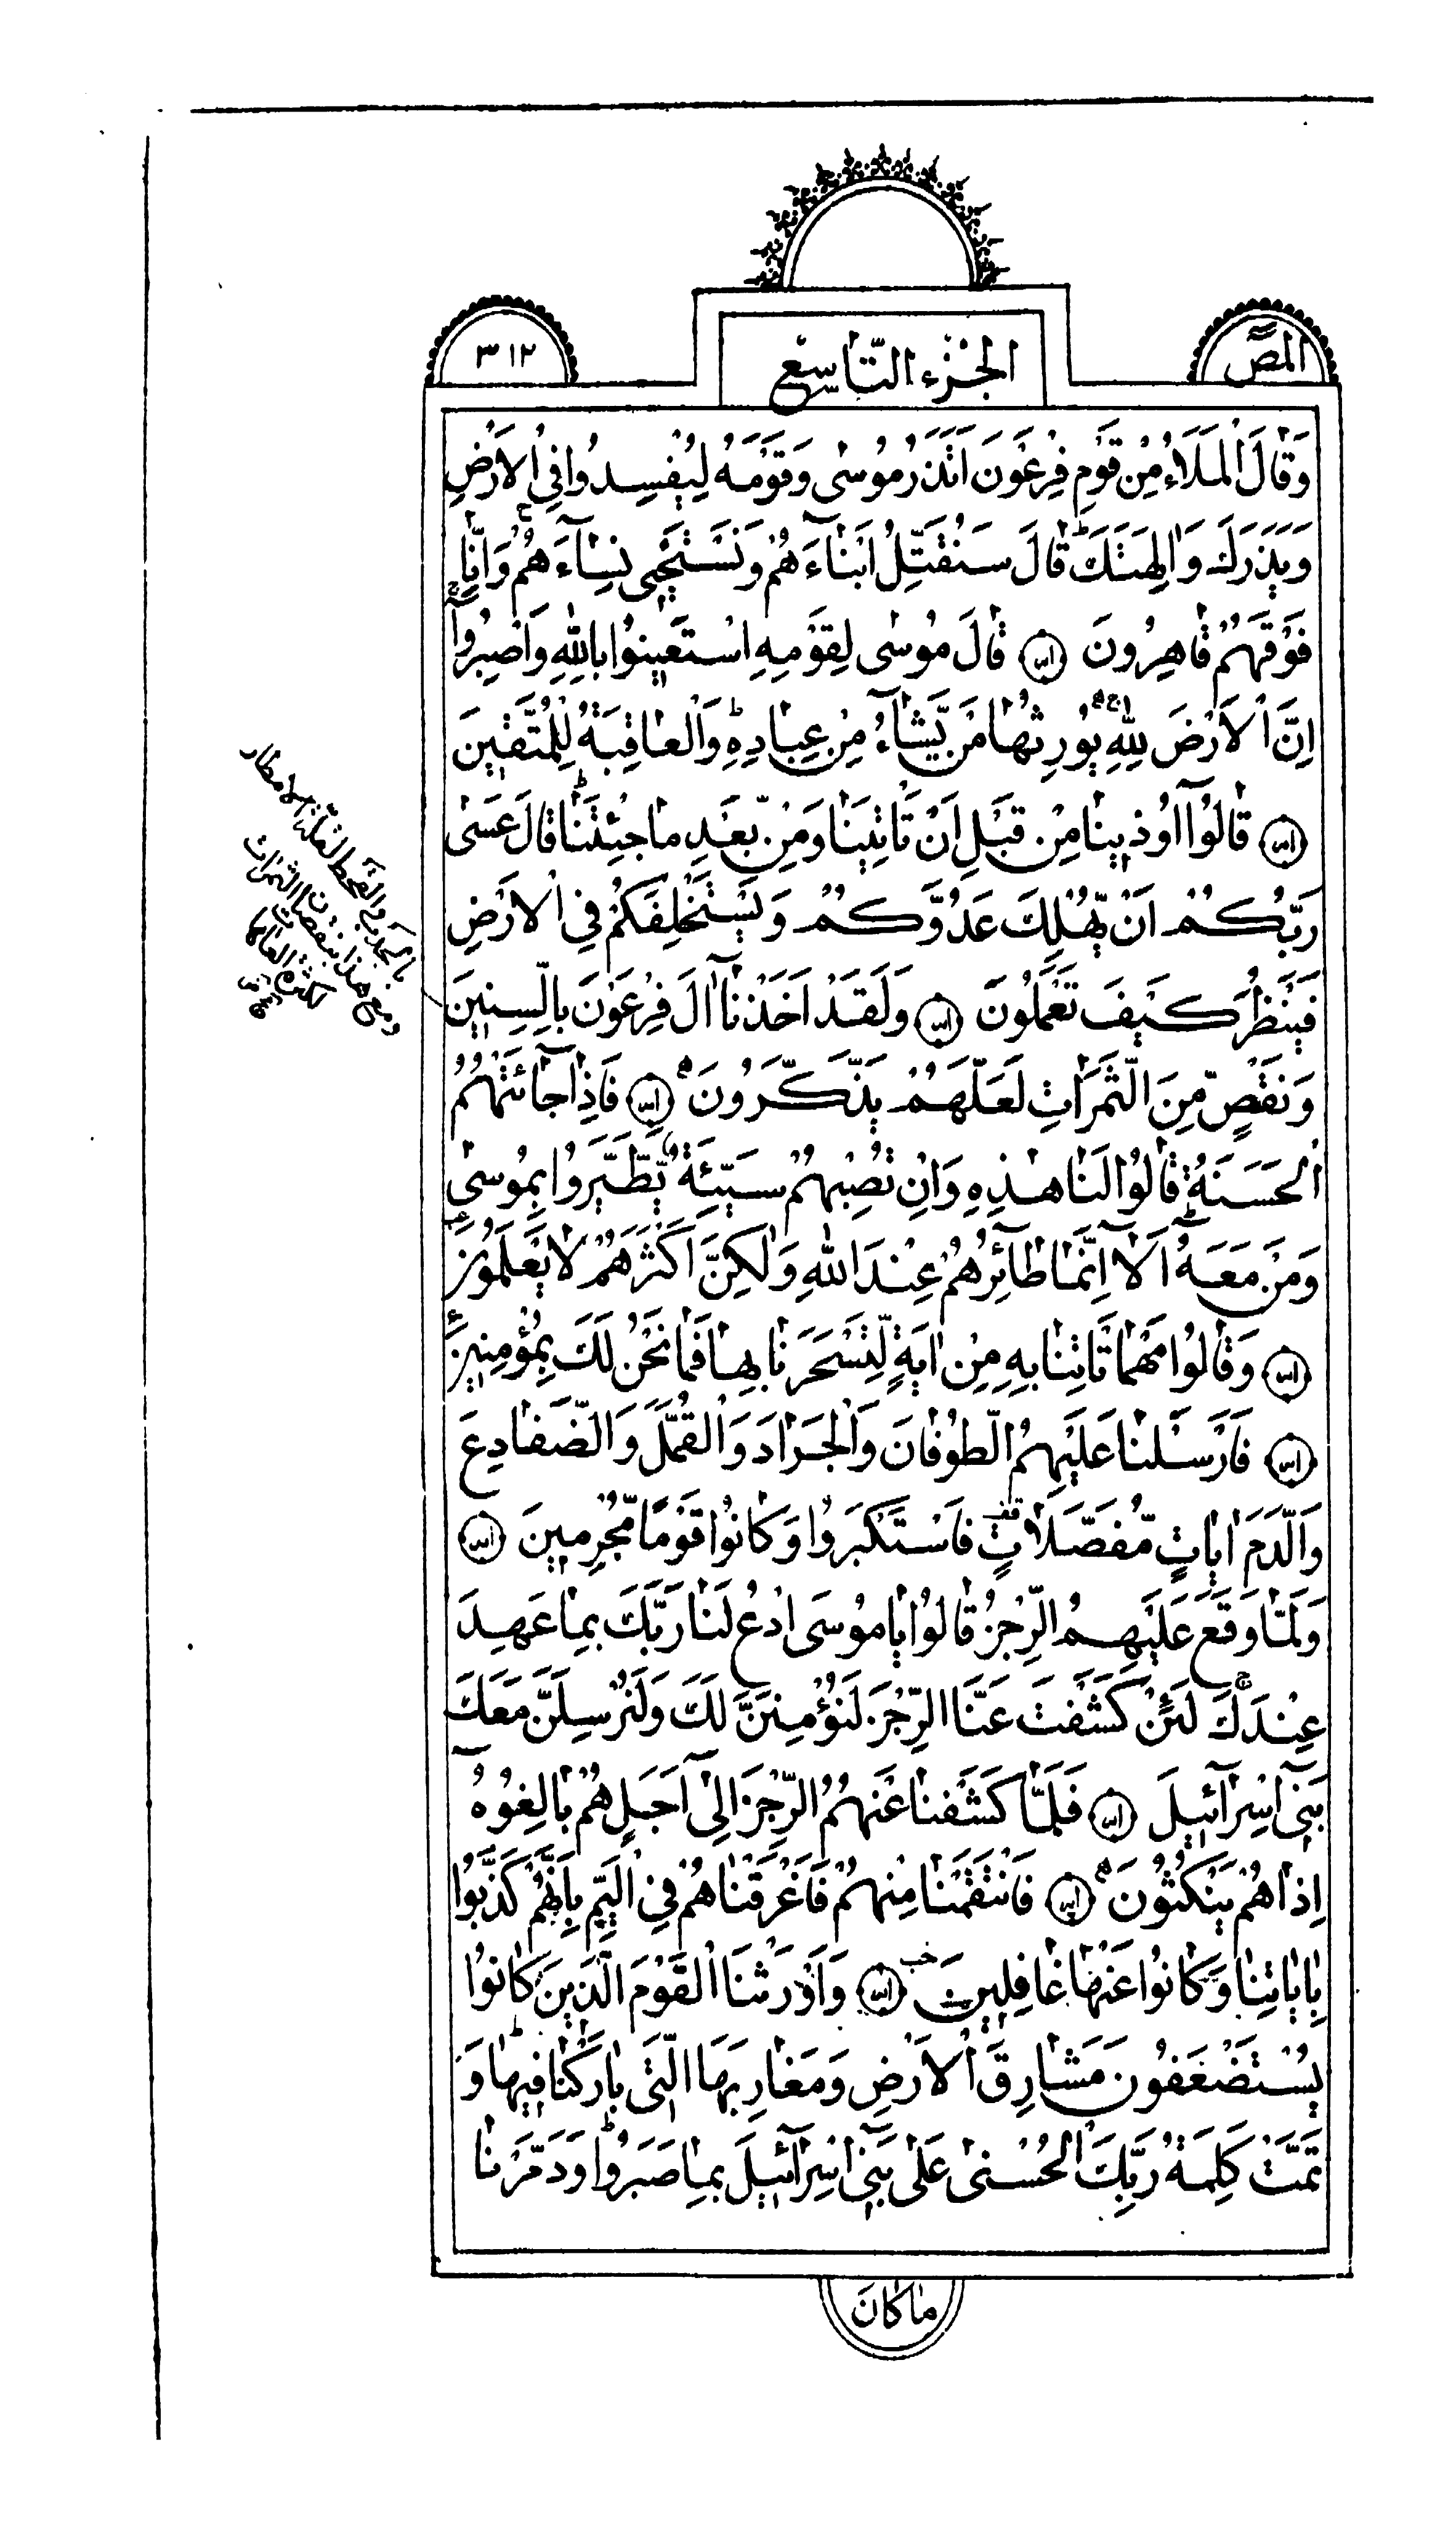 المص
الجزء التاسع
٣١٢
وَقَالَ الْمَلَاءُ مِنْ قَوْمِ فِرْعَوْنَ اَتَذَرُ مُوسٰى وَقَوْمَهُ لِيُفْسِدُوا فِي الْاَرْضِ
وَيَذَرَكَ وَاٰلِهَتَكَ ط قَالَ سَنُقَتِّلُ اَبْنَآءَهُمْ وَنَسْتَحْيِي نِسَآءَهُمْ ج وَاِنَّا
فَوْقَهُمْ قَاهِرُونَ قَالَ مُوسٰى لِقَوْمِهِ اسْتَعِينُوا بِاللّٰهِ وَاصْبِرُوا ج
اِنَّ الْاَرْضَ لِلّٰهِ يُورِثُهَا مَنْ يَّشَآءُ مِنْ عِبَادِهِ ط وَالْعَاقِبَةُ لِلْمُتَّقِينَ
قَالُوٓا اُوذِينَا مِنْ قَبْلِ اَنْ تَاْتِيَنَا وَمِنْ بَّعْدِ مَا جِئْتَنَا ط قَالَ عَسٰى
رَبُّكُمْ اَنْ يُّهْلِكَ عَدُوَّكُمْ وَيَسْتَخْلِفَكُمْ فِي الْاَرْضِ
فَيَنْظُرَ كَيْفَ تَعْمَلُونَ وَلَقَدْ اَخَذْنَآ اٰلَ فِرْعَوْنَ بِالسِّنِينَ
وَنَقْصٍ مِّنَ الثَّمَرَاتِ لَعَلَّهُمْ يَذَّكَّرُونَ فَاِذَا جَآئَتْهُمُ
الْحَسَنَةُ قَالُوا لَنَا هٰذِهِ وَاِنْ تُصِبْهُمْ سَيِّئَةٌ يَّطَّيَّرُوا بِمُوسٰى
وَمَنْ مَعَهُ ط اَلَآ اِنَّمَا طَآئِرُهُمْ عِنْدَ اللّٰهِ وَلٰكِنَّ اَكْثَرَهُمْ لَا يَعْلَمُونَ
وَقَالُوا مَهْمَا تَاْتِنَا بِهِ مِنْ اٰيَةٍ لِّتَسْحَرَنَا بِهَا فَمَا نَحْنُ لَكَ بِمُؤْمِنِينَ
فَاَرْسَلْنَا عَلَيْهِمُ الطُّوفَانَ وَالْجَرَادَ وَالْقُمَّلَ وَالضَّفَادِعَ
وَالدَّمَ اٰيَاتٍ مُّفَصَّلَاتٍ قف فَاسْتَكْبَرُوا وَكَانُوا قَوْمًا مُّجْرِمِينَ
وَلَمَّا وَقَعَ عَلَيْهِمُ الرِّجْزُ قَالُوا يَا مُوسَى ادْعُ لَنَا رَبَّكَ بِمَا عَهِدَ
عِنْدَكَ ج لَئِنْ كَشَفْتَ عَنَّا الرِّجْزَ لَنُؤْمِنَنَّ لَكَ وَلَنُرْسِلَنَّ مَعَكَ
بَنِىٓ اِسْرَآئِيلَ فَلَمَّا كَشَفْنَا عَنْهُمُ الرِّجْزَ اِلٰىٓ اَجَلٍ هُمْ بَالِغُوهُ
اِذَا هُمْ يَنْكُثُونَ فَانْتَقَمْنَا مِنْهُمْ فَاَغْرَقْنَاهُمْ فِي الْيَمِّ بِاَنَّهُمْ كَذَّبُوا
بِاٰيَاتِنَا وَكَانُوا عَنْهَا غَافِلِينَ وَاَوْرَثْنَا الْقَوْمَ الَّذِينَ كَانُوا
يُسْتَضْعَفُونَ مَشَارِقَ الْاَرْضِ وَمَغَارِبَهَا الَّتِي بَارَكْنَا فِيهَا ط وَ
تَمَّتْ كَلِمَةُ رَبِّكَ الْحُسْنٰى عَلٰى بَنِىٓ اِسْرَآئِيلَ بِمَا صَبَرُوا ط وَدَمَّرْنَا
مَا كَانَ
بالجدب والقحط لقلة الامطار
ومع هذا بنقصان الثمرات
لكثرة العاهات